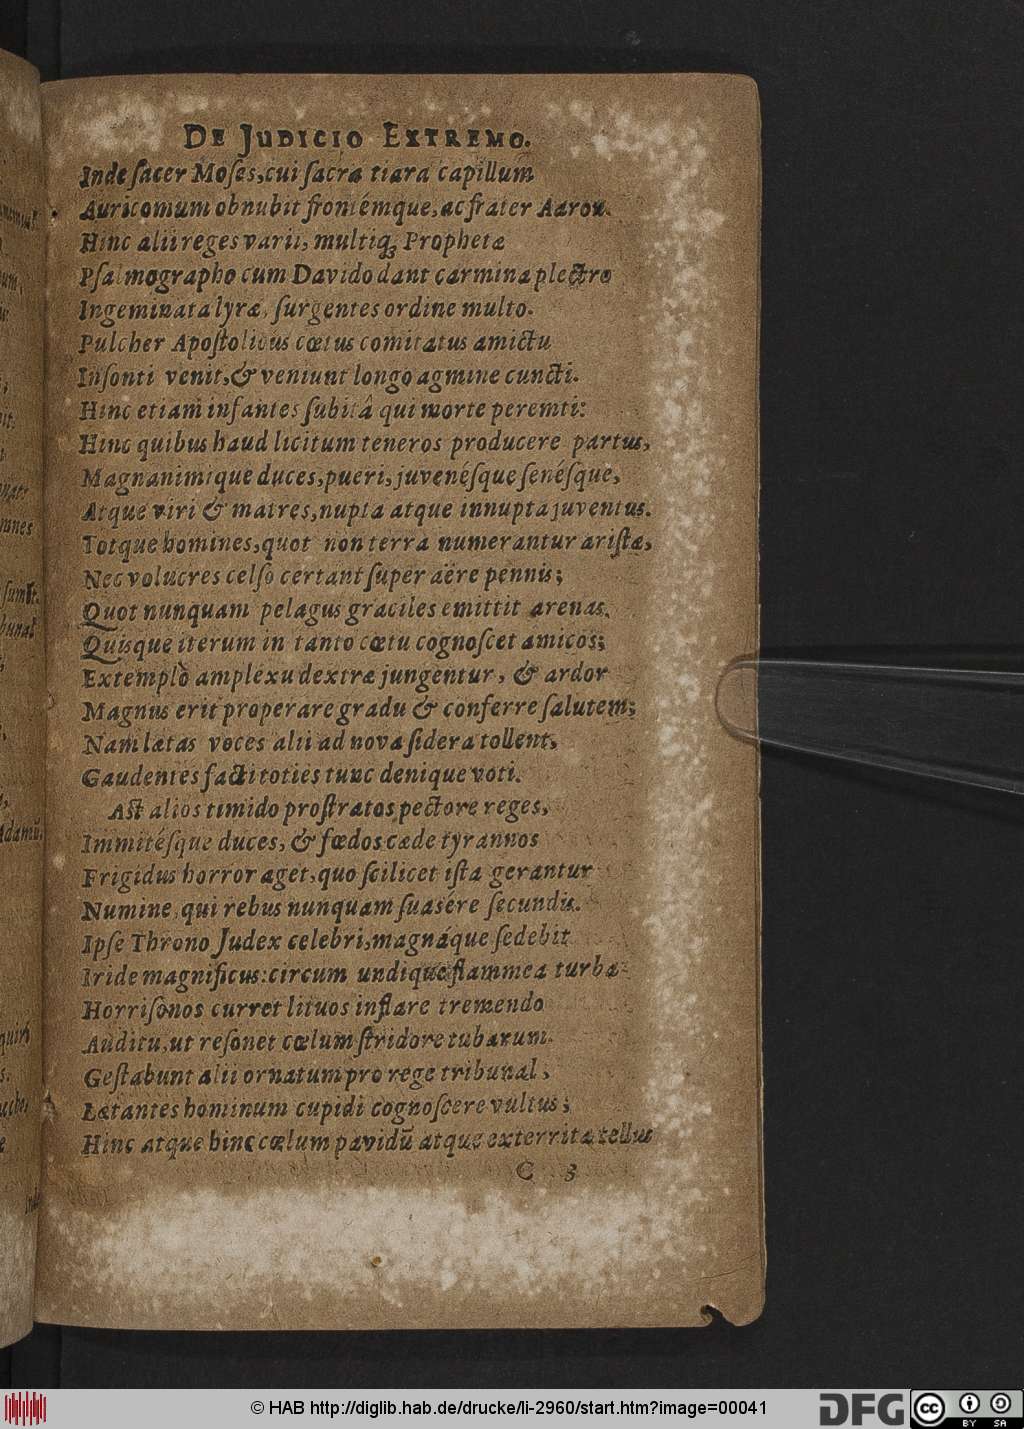 DE JUDICIO EXTREMO.
Inde ſacer Moſes, cui ſacra tiara capillum
Auricomum obnubit frontémque, ac frater Aaron.
Hinc alii reges varii, multiq́; Prophetæ
Pſalmographo cum Davido dant carmina plectro
Ingeminata lyræ, ſurgentes ordine multo.
Pulcher Apoſtolicus cœtus comitatus amictu
Inſonti venit, & veniunt longo agmine cuncti.
Hinc etiam infantes ſubitâ qui morte peremti:
Hinc quibus haud licitum teneros producere partus,
Magnanimique duces, pueri, juvenéſque ſenéſque,
Atque viri & matres, nupta atque innupta juventus.
Totque homines, quot non terra numerantur ariſtæ,
Nec volucres celſo certant ſuper aëre pennis;
Quot nunquam pelagus graciles emittit arenas.
Quisque iterum in tanto cœtu cognoſcet amicos;
Extemplò amplexu dextræ jungentur, & ardor
Magnus erit properare gradu & conferre ſalutem;
Nam lætas voces alii ad nova ſidera tollent,
Gaudentes facti toties tunc denique voti.
Aſt alios timido proſtratos pectore reges,
Immitéſque duces, & fœdos cæde tyrannos
Frigidus horror aget, quo ſcilicet iſta gerantur
Numine, qui rebus nunquam ſuasére ſecundis.
Ipſe Throno Judex celebri, magnáque ſedebit
Iride magnificus: circum undique flammea turba
Horriſonos curret lituos inflare tremendo
Auditu, ut reſonet cœlum ſtridore tubarum.
Geſtabunt alii ornatum pro rege tribunal,
Lætantes hominum cupidi cognoſcere vultus;
Hinc atque hinc cœlum pavidū atque exterrita tellus
C 3
© HAB http://diglib.hab.de/drucke/li-2960/start.htm?image=00041
DFG
cc
BY SA